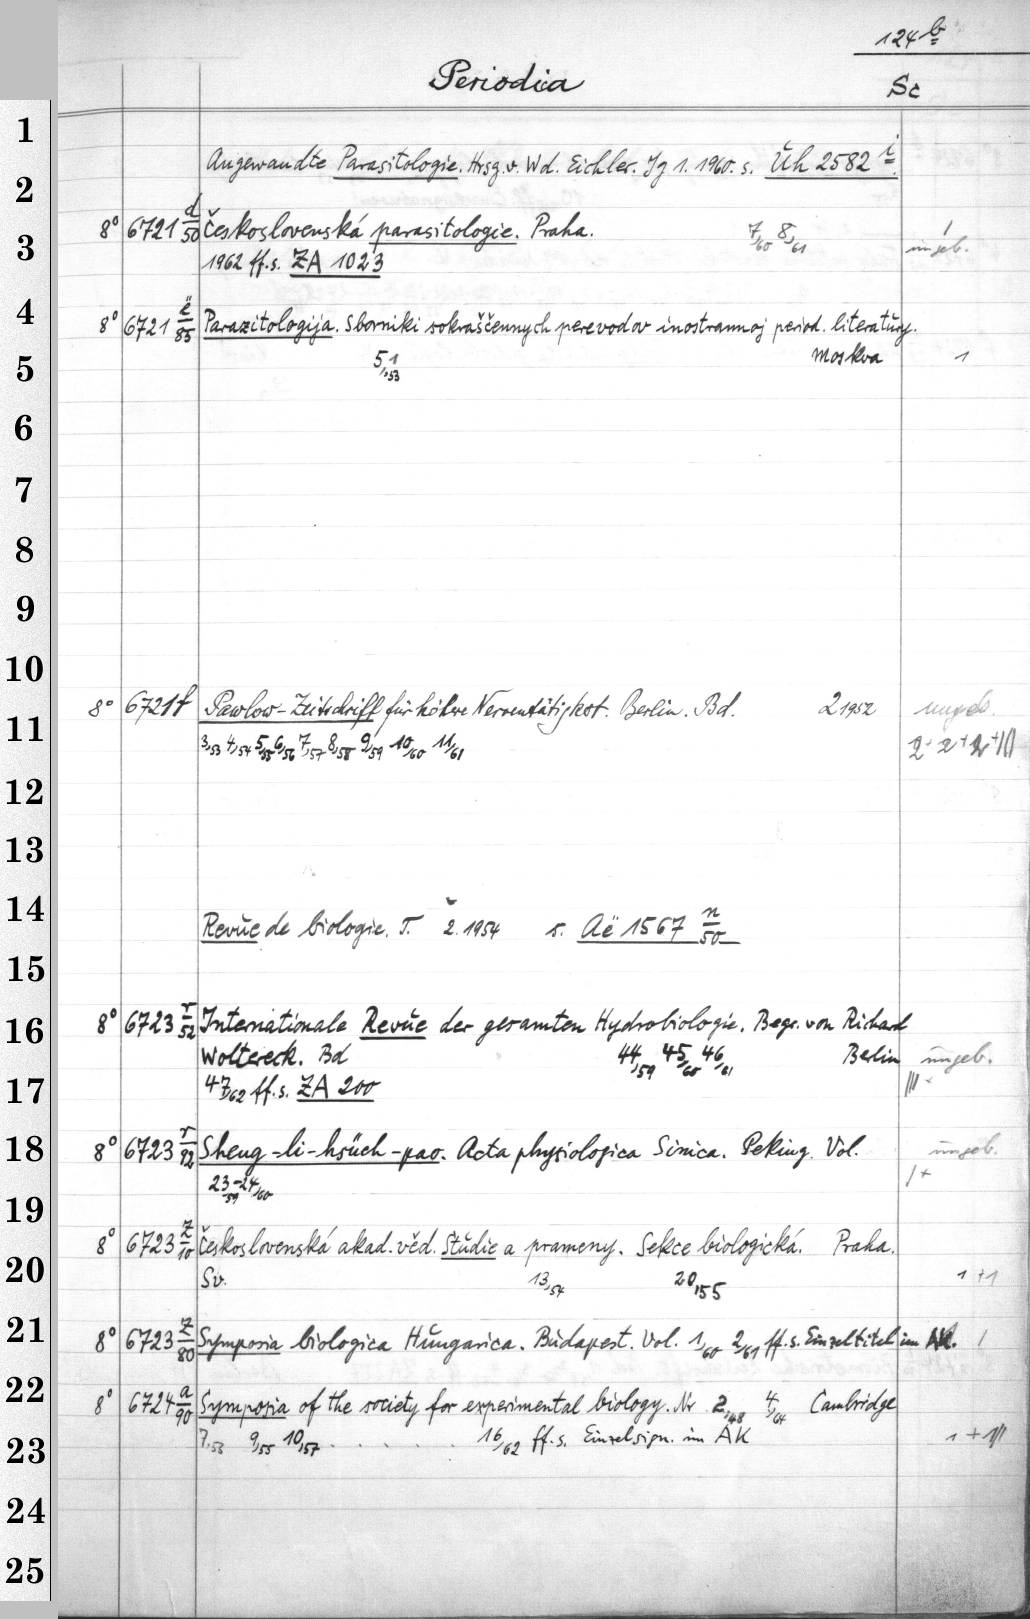 124 b
Periodica
Sc
1
Angewandte Parasitologie. Hrsg. v. Wd. Eichler. Jg 1. 1960. s. Uh 2582 i
2
8° 6721 d/50 Československá parasitologie. Praha. 7,60 8,61 ungeb.
3
1962 ff. s. ZA 1023
4
8° 6721 ë/85 Parazitologija. Sborniki sokraščennych perevodov inostrannoj period. literatury.
5,1,53 Moskva 1
5
6
7
8
9
10
8° 6721 f Pawlow-Zeitschrift für höhere Nerventätigkeit. Berlin. Bd. 2 1952 ungeb.
11
3,53 4,54 5,55 6,56 7,57 8,58 9,59 10,60 11,61 2+2+2+III
12
13
14
Revue de biologie. T. 2. 1954 s. Aë 1567 n/50
15
8° 6723 r/52 Internationale Revue der gesamten Hydrobiologie. Begr. von Richard
16
Woltereck. Bd 44,59 45,60 46,61 Berlin ungeb.
17
47,62 ff. s. ZA 200 III +
8° 6723 r/92 Sheng-li-hsüeh-pao. Acta physiologica Sinica. Peking. Vol. ungeb.
18
23,59-24,60 I +
19
8° 6723 z/10 Československá akad. věd. Studie a prameny. Sekce biologická. Praha.
20
Sv. 13,54 20,55 1 +1
21
8° 6723 z/80 Symposia biologica Hungarica. Budapest. Vol. 1,60 2,61 ff. s. Einzeltitel im AK. I
22
8° 6724 a/90 Symposia of the society for experimental biology. Nr 2,48 4, Cambridge
23
7,53 9,55 10,57 . . . . . . 16,62 ff. s. Einzelsign. im AK 1 + III
24
25